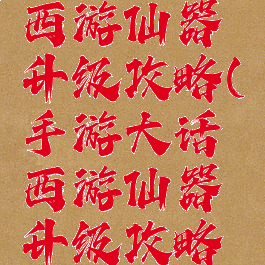 西游仙器
升级攻略(
手游大话
西游仙器
升级攻略